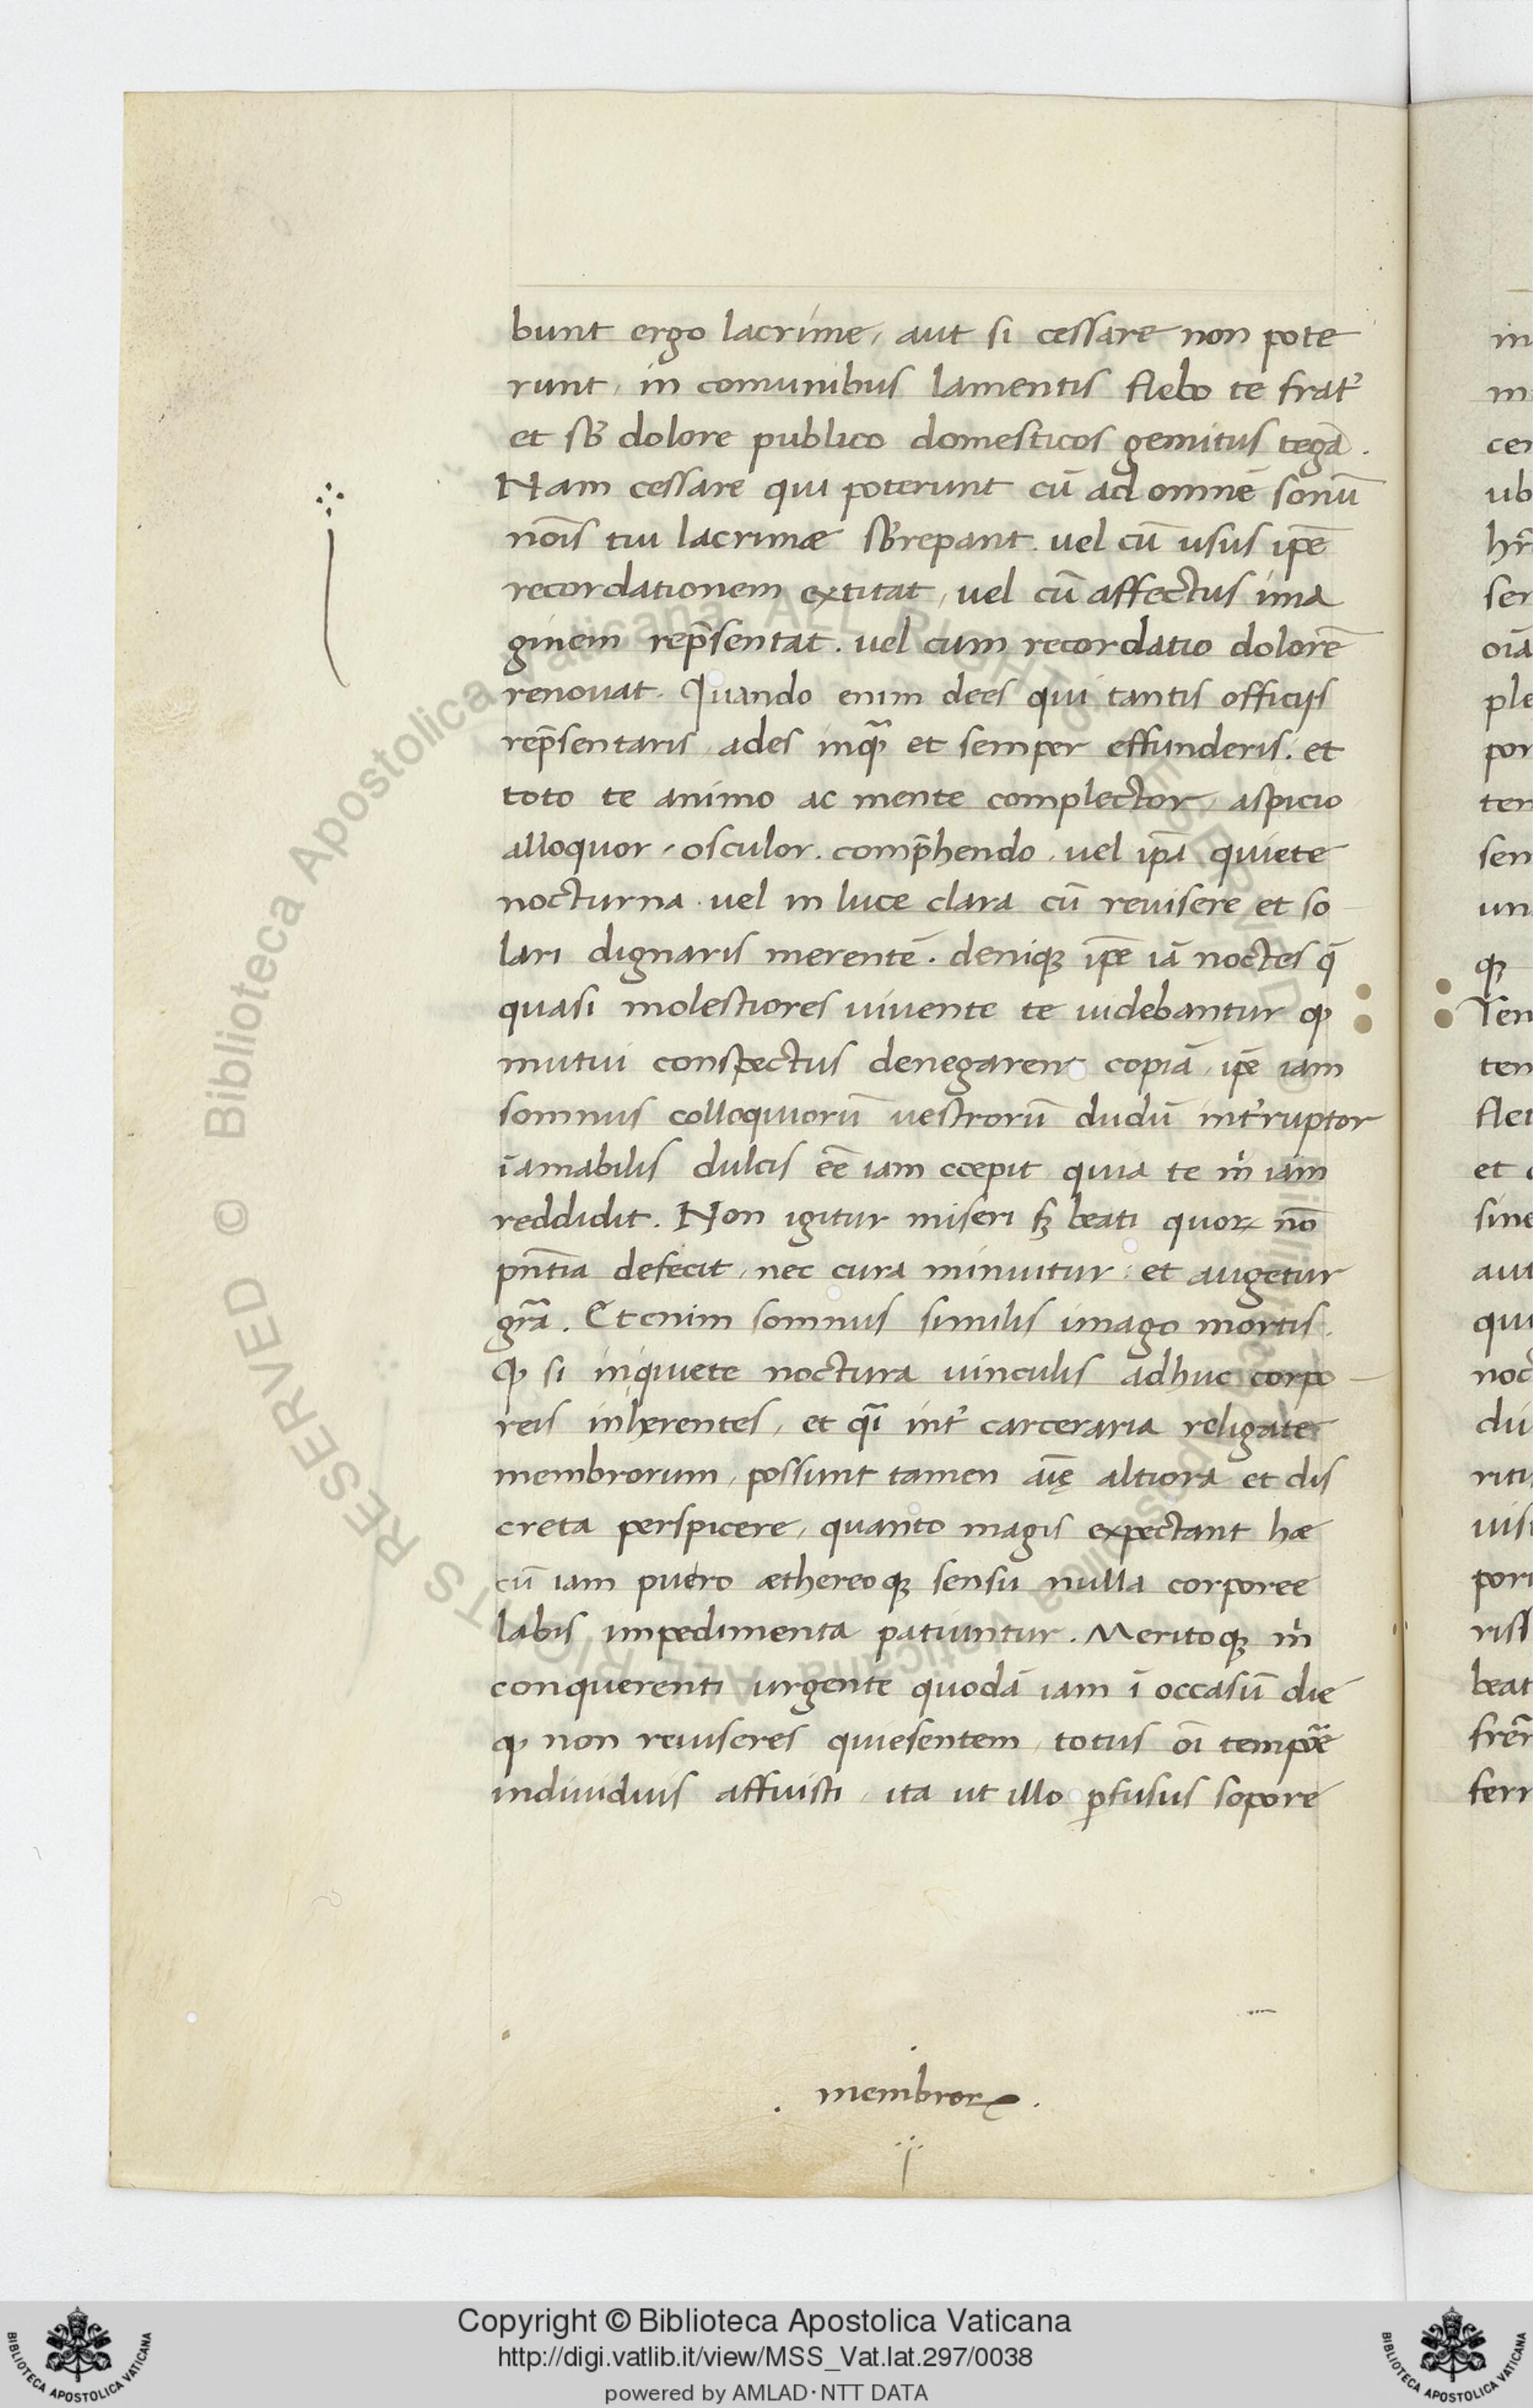 bunt ergo lacrime, aut si cessare non pote
runt, in comunibus lamentis flebo te frat᾽
et sb᾽ dolore publico domesticos gemitus tegā.
Nam cessare qui poterunt cū ad omnē sonū
nōis tui lacrimæ sb᾽repant. uel cū usus ip̄e
recordationem extitat, uel cū affectus ima
ginem rep̄sentat. uel cum recordatio dolorē
renouat. Quando enim dees qui tantis officijs
rep̄sentaris, ades inq̄ et semper effunderis. et
toto te animo ac mente complector, aspicio
alloquor, osculor. comp̄hendo, uel ip̄a quiete
nocturna. uel in luce clara cū reuisere et so
lari dignaris merentē. deniqꝫ ip̄e iā noctes q̄
quasi molestiores uiuente te uidebantur ꝙ
mutui conspectus denegarent copiā, ip̄e iam
somnus colloquiorū uestrorū dudū int᾽ruptor
īamabilis dulcis ēe iam ccepit quia te m̊ iam
reddidit. Non igitur miseri sꝫ beati quoꝝ nō
pn̄tia defecit, nec cura minuitur: et augetur
gr̄a. Et enim somnus similis imago mortis.
Ꝙ si inquiete noctura uinculis adhuc corpo
reis inherentes, et q̄i int᾽ carceraria religate
membrorum, possunt tamen aīę altiora et dis
creta perspicere, quanto magis expectant hæ
cū iam puero æthereoqꝫ sensu nulla corporee
labis impedimenta patiuntur. Meritoqꝫ m̊
conquerenti urgente quodā iam ī occasū die
ꝙ non reuiseres quiesentem, totus oī tempr̄e
indiuiduis affuisti, ita ut illo ꝑfusus sopore
membroꝝ.
in
m
cer
ub
hr̄
ser
oīa
ple
por
ter
sen
un
qꝫ
Ten
ten
flet
et
sine
aut
qui
noc
du
ritu
uisi
pori
riss
beat
frēr
ferr
© Biblioteca Apostolica Vaticana ALL RIGHTS RESERVED
Copyright © Biblioteca Apostolica Vaticana
http://digi.vatlib.it/view/MSS_Vat.lat.297/0038
powered by AMLAD·NTT DATA
BIBLIOTECA APOSTOLICA VATICANA
BIBLIOTECA APOSTOLICA VATICANA